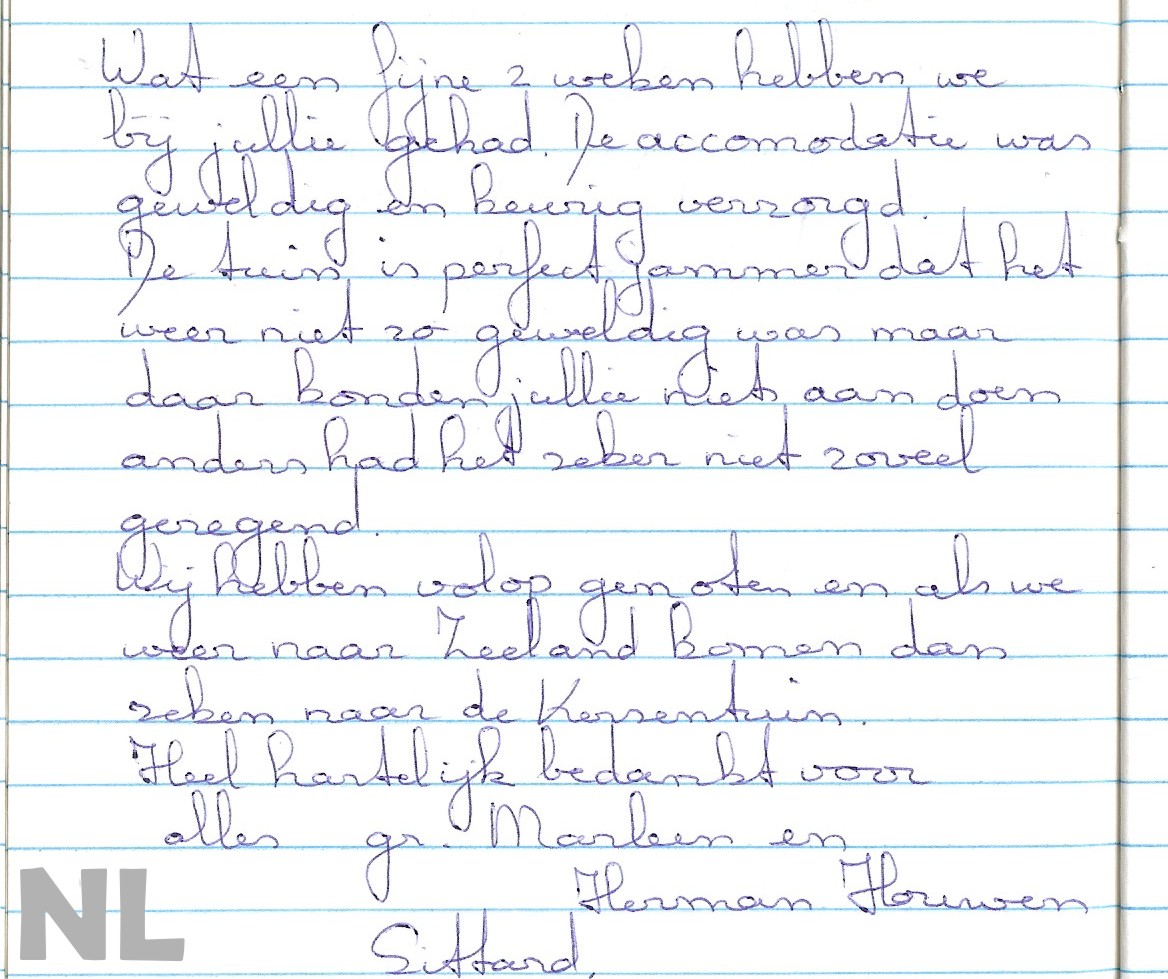 Wat een fijne 2 weken hebben we
bij jullie gehad. De accomodatie was
geweldig en keurig verzorgd.
De tuin is perfect jammer dat het
weer niet zo geweldig was maar
daar konden jullie niets aan doen
anders had het zeker niet zoveel
geregend.
Wij hebben volop genoten en als we
weer naar Zeeland komen dan
zeken naar de Kersentuin.
Heel hartelijk bedankt voor
alles gr. Marleen en
Herman Houwen
Sittard.
NL